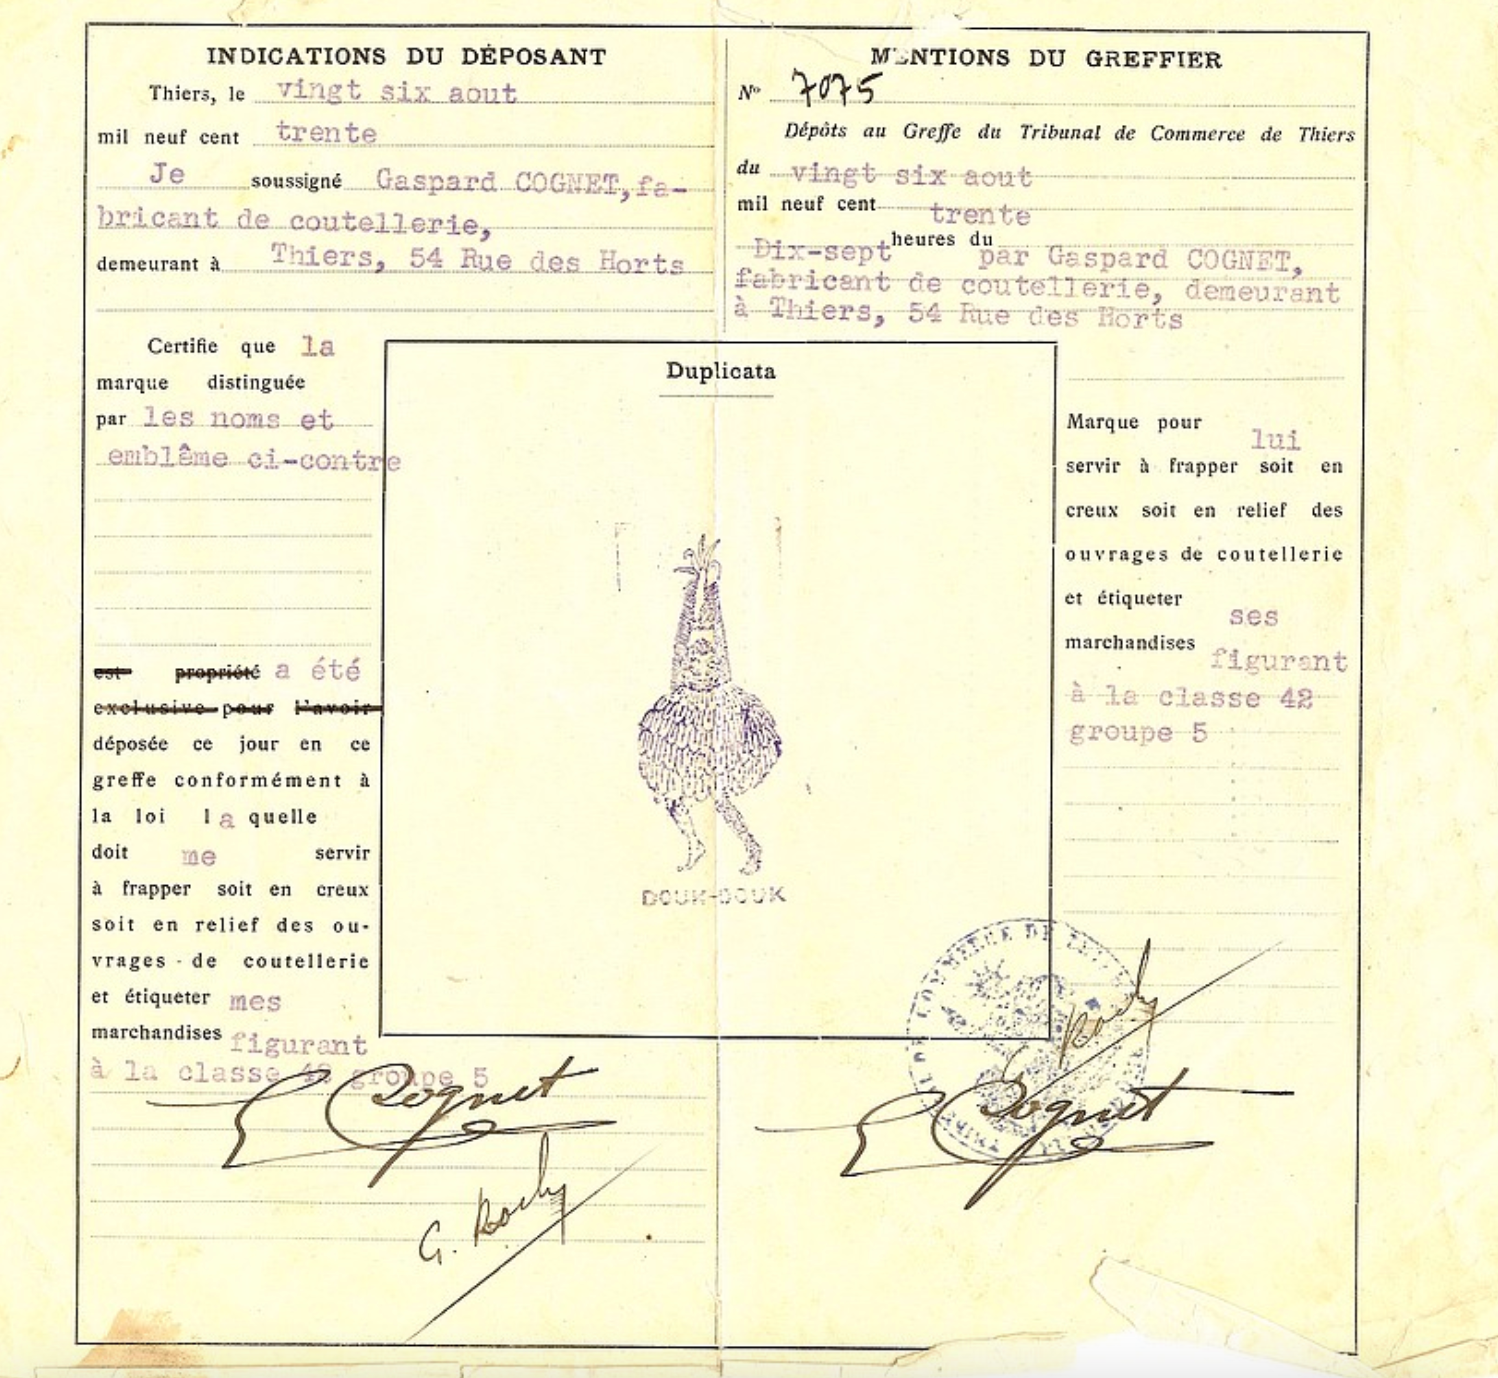 INDICATIONS DU DÉPOSANT
Thiers, le vingt six aout
mil neuf cent trente
Je soussigné Gaspard COGNET, fa-
bricant de coutellerie,
demeurant à Thiers, 54 Rue des Horts
MENTIONS DU GREFFIER
No 7075
Dépôts au Greffe du Tribunal de Commerce de Thiers
du vingt six aout
mil neuf cent trente
Dix-sept heures du par Gaspard COGNET,
fabricant de coutellerie, demeurant
à Thiers, 54 Rue des Horts
Certifie que la
marque distinguée
par les noms et
emblême ci-contre
est propriété a été
exclusive pour l'avoir
déposée ce jour en ce
greffe conformément à
la loi la quelle
doit me servir
à frapper soit en creux
soit en relief des ou-
vrages de coutellerie
et étiqueter mes
marchandises figurant
à la classe 42 groupe 5
Duplicata
DOUK-DOUK
Marque pour lui
servir à frapper soit en
creux soit en relief des
ouvrages de coutellerie
et étiqueter ses
marchandises figurant
à la classe 42
groupe 5
COMMERCE DE
Cognet
Cognet